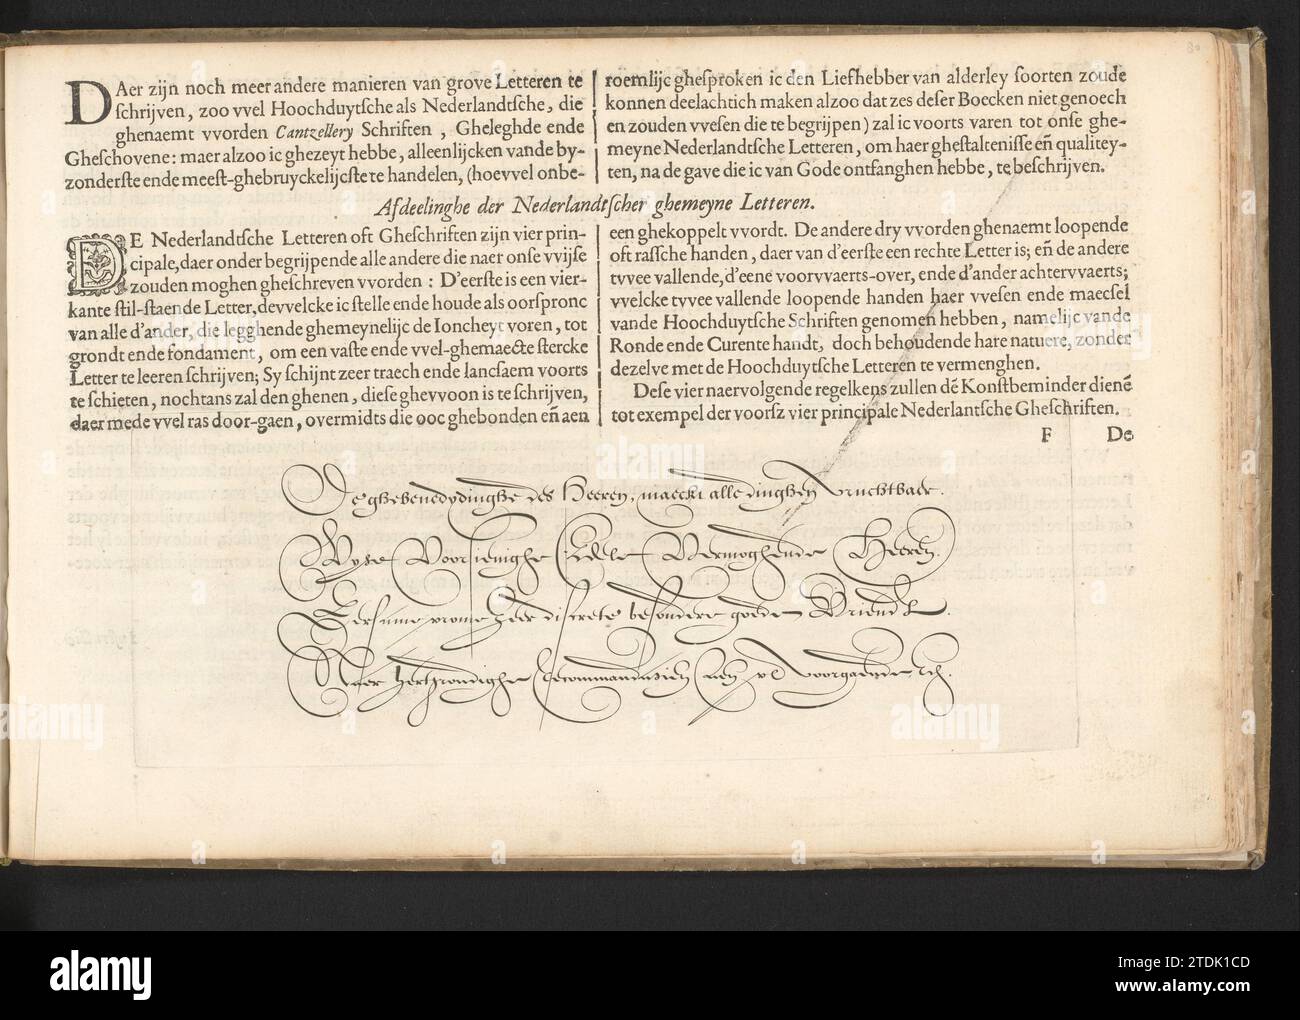 DAer zijn noch meer andere manieren van grove Letteren te
ſchrijven, zoo vvel Hoochduytſche als Nederlandtſche, die
ghenaemt vvorden Cantzellery Schriften, Gheleghde ende
Gheſchovene: maer alzoo ic ghezeyt hebbe, alleenlijcken vande by-
zonderſte ende meeſt-ghebruyckelijcſte te handelen, (hoevvel onbe-
roemlijc gheſproken ic den Liefhebber van alderley ſoorten zoude
konnen deelachtich maken alzoo dat zes deſer Boecken niet genoech
en zouden vveſen die te begrijpen) zal ic voorts varen tot onſe ghe-
meyne Nederlandtſche Letteren, om haer gheſtalteniſſe en̄ qualitey-
ten, na de gave die ic van Gode ontfanghen hebbe, te beſchrijven.
Afdeelinghe der Nederlandtſcher ghemeyne Letteren.
DE Nederlandtſche Letteren oft Gheſchriften zijn vier prin-
cipale, daer onder begrijpende alle andere die naer onſe vvijſe
zouden moghen gheſchreven vvorden: D'eerſte is een vier-
kante ſtil-ſtaende Letter, devvelcke ic ſtelle ende houde als oorſpronc
van alle d'ander, die legghende ghemeynelijc de Ioncheyt voren, tot
grondt ende fondament, om een vaſte ende vvel-ghemaecte ſtercke
Letter te leeren ſchrijven; Sy ſchijnt zeer traech ende lancſaem voorts
te ſchieten, nochtans zal den ghenen, dieſe ghevvoon is te ſchrijven,
daer mede vvel ras door-gaen, overmidts die ooc ghebonden en̄ aen
een ghekoppelt vvordt. De andere dry vvorden ghenaemt loopende
oft raſſche handen, daer van d'eerſte een rechte Letter is; en̄ de andere
tvvee vallende, d'eene voorvvaerts-over, ende d'ander achtervvaerts;
vvelcke tvvee vallende loopende handen haer vveſen ende maecſel
vande Hoochduytſche Schriften genomen hebben, namelijc vande
Ronde ende Curente handt, doch behoudende hare natuere, zonder
dezelve met de Hoochduytſche Letteren te vermenghen.
Deſe vier naervolgende regelkens zullen dē Konſtbeminder dienē
tot exempel der voorſz vier principale Nederlantſche Gheſchriften.
F De
De ghebenedydinghe des Heeren, maeckt alle dinghen vruchtbaer.
Wyse Voorsienighe Edele Vermoghende Heeren.
Eersame vrome zeer discrete besondere goede Vriendt.
Naer hertgrondighe Recommandatien aen Voorgaende
alamy
Image ID: 2TDK1CD
www.alamy.com